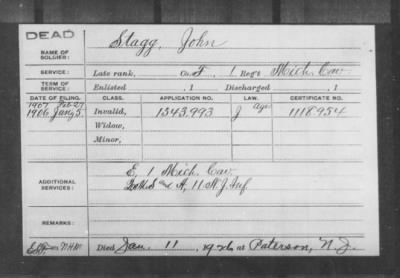 DEAD
NAME OF SOLDIER: Stagg, John
SERVICE: Late rank, Co. F, 1 Reg't Mich. Cav.
TERM OF SERVICE: Enlisted , 1 Discharged , 1
DATE OF FILING. CLASS. APPLICATION NO. LAW. CERTIFICATE NO.
1907 Feb-27
1906 Jan 5 Invalid, 1343,993 J 1118954
Widow,
Minor,
E, 1 Mich. Cav.
ADDITIONAL SERVICES: A, 11 N.J. Inf
REMARKS:
Died Jan. 11, 1926 at Paterson, N.J.